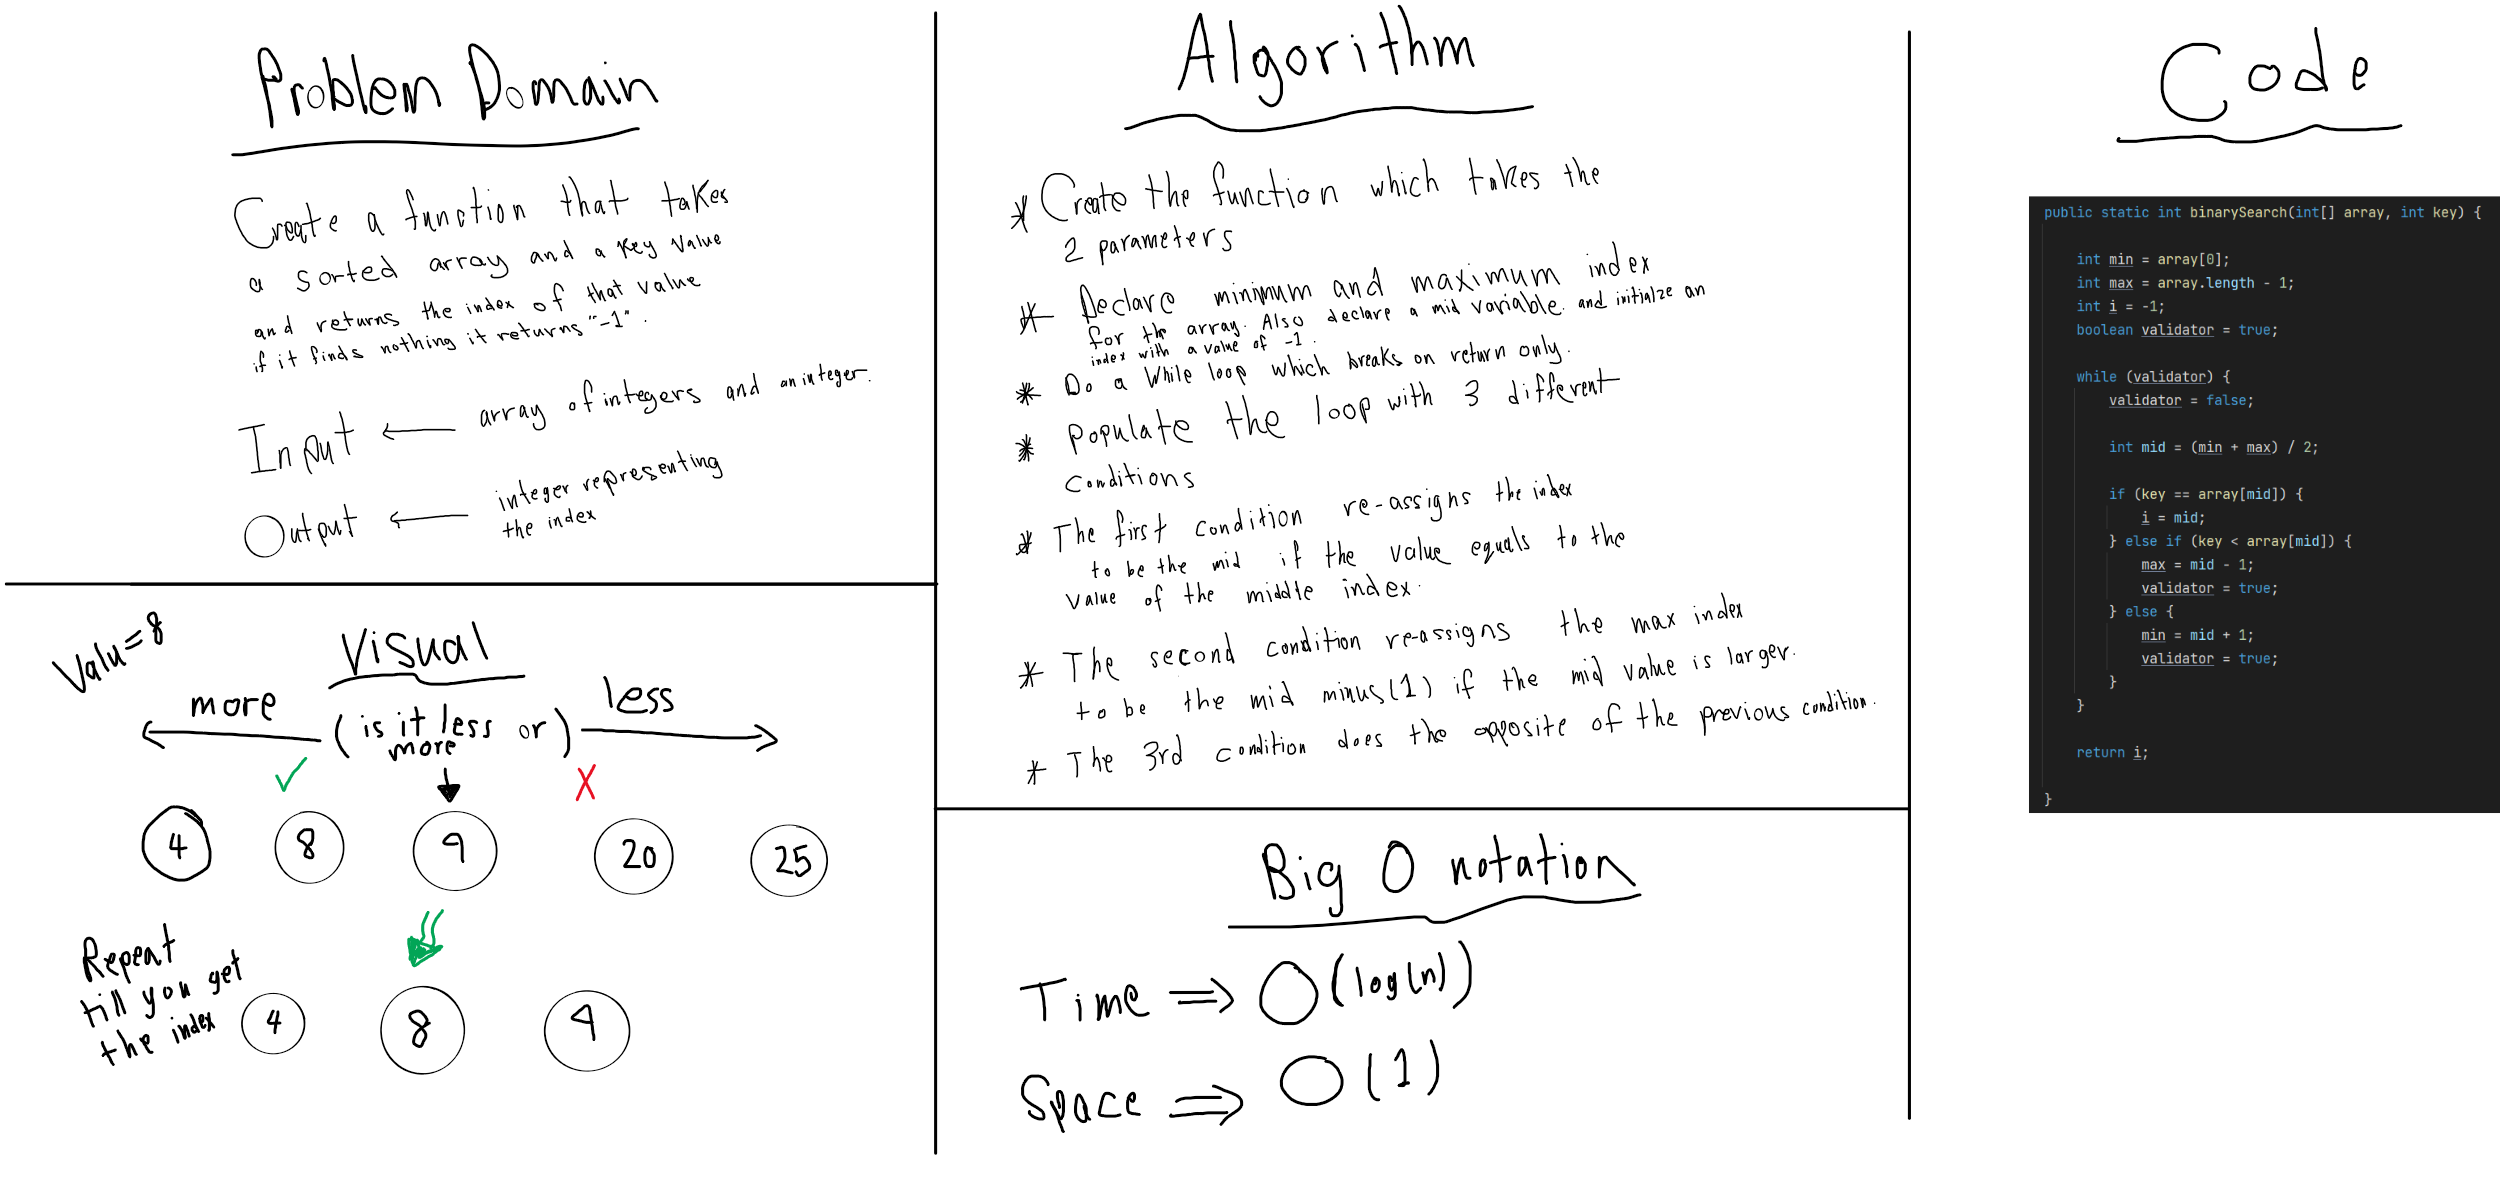 Problem Domain
Create a function that takes
a sorted array and a key value
and returns the index of that value
if it finds nothing it returns "-1".
Input ← array of integers and an integer.
Output ← integer representing
the index
Value=8
Visual
more
(is it less or)
more
less
4
8
9
20
25
Repeat
till you get
the index
4
8
9
Algorithm
* Create the function which takes the
2 parameters
* Declare minimum and maximum index
for the array. Also declare a mid variable. and initialze an
index with a value of -1.
* Do a while loop which breaks on return only.
* Populate the loop with 3 different
conditions
* The first condition re-assigns the index
to be the mid if the value equals to the
value of the middle index.
* The second condition re-assigns the max index
to be the mid minus(1) if the mid value is larger.
* The 3rd condition does the opposite of the previous condition.
Big O notation
Time ⇒ O(log(n))
Space ⇒ O(1)
Code
public static int binarySearch(int[] array, int key) {
int min = array[0];
int max = array.length - 1;
int i = -1;
boolean validator = true;
while (validator) {
validator = false;
int mid = (min + max) / 2;
if (key == array[mid]) {
i = mid;
} else if (key < array[mid]) {
max = mid - 1;
validator = true;
} else {
min = mid + 1;
validator = true;
}
}
return i;
}